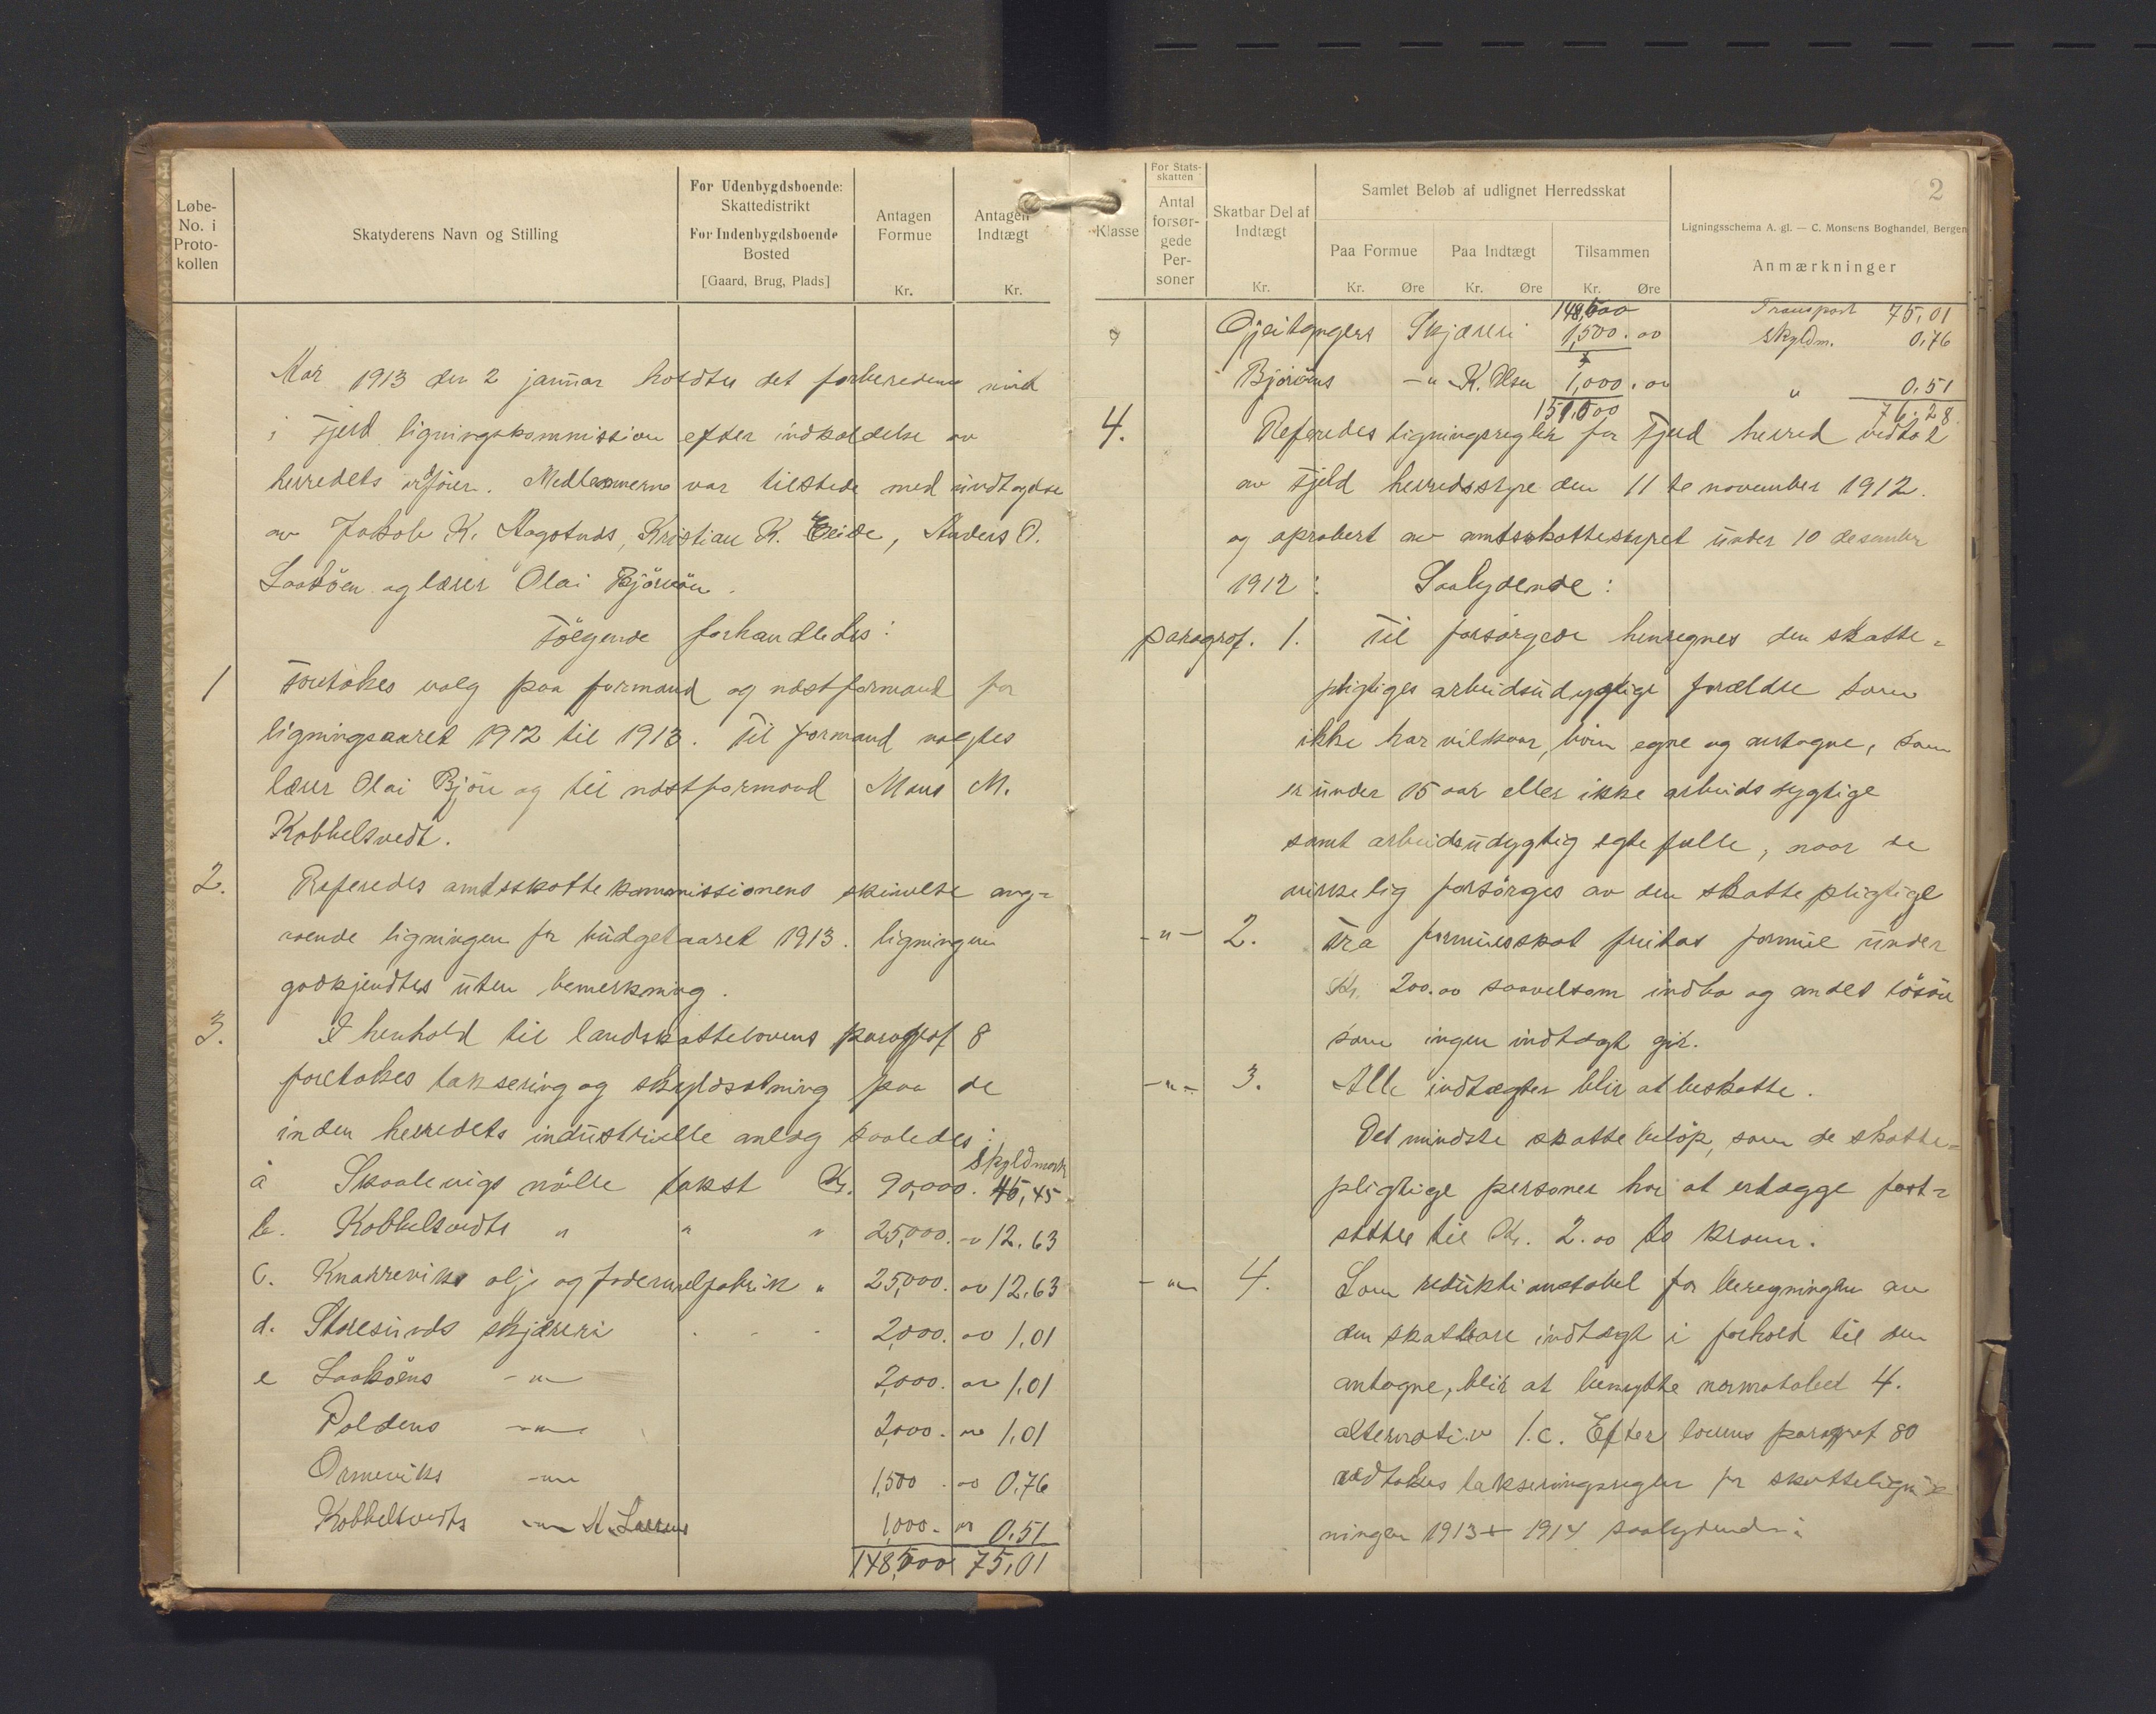 Løbe-
No. i
Proto-
kollen
Skatyderens Navn og Stilling
For Udenbygdsboende:
Skattedistrikt
For Indenbygdsboende
Bosted
[Gaard, Brug, Plads]
Antagen
Formue
Kr.
Antagen
Indtægt
Kr.
Aar 1913 den 2 januar holdtes det forberedende møte
i Fjeld ligningskommission efter indkaldelse av
herredets ordfører. Medlemmerne var tilstede med undtagelse
av Jakob K. Aagotnes, Kristian K. Eide, Anders O.
Laaköen og lærer Olai Björöen.
Fölgende forhandledes:
1 Foretokes valg paa formand og næstformand for
ligningsaaret 1912 til 1913. Til formand valgtes
lærer Olai Björö og til næstformand Mons M.
Kobbeltvedt.
2. Referedes amtsskattekommissionens skrivelse ang-
aaende ligningen for budgetaaret 1913. ligningen
godkjendtes uten bemerkning.
3. I henhold til landskattelovens paragraf 8
foretokes taksering og skyldsætning paa de
inden herredets industrielle anlæg saaledes:
Skyldmark
a Skaalevigs mölle takst Kr. 90,000. 45,45
b. Kobbeltvedts " " " 25,000. oo 12.63
C. Knarreviks olje og fodermelfabrik " 25,000. oo 12.63
d. Storesunds skjæreri 2,000. oo 1,01
e Laaköens -"- 2,000. oo 1,01
Poldens -"- 2,000. oo 1,01
Ormeviks -"- 1,500. oo 0.76
Kobbeltvedts -"- A. Larsens 1,000. oo 0.51
148,500 75,01
Klasse
For Stats-
skatten
Antal
forsør-
gede
Per-
soner
Skatbar Del af
Indtægt
Kr.
Samlet Beløb af udlignet Herredsskat
Paa Formue
Kr. Øre
Paa Indtægt
Kr. Øre
Tilsammen
Kr. Øre
2
Ligningsschema A. gl. — C. Monsens Boghandel, Bergen
Anmærkninger
148,500 Transport 75,01
Gjeitangers Skjæreri 1,500.oo Skyldm. 0,76
Björöens -"- K. Olsen 1,000.oo " 0.51
151,000 76.28
4. Referedes ligningsregler for Fjeld herred vedtat
av Fjeld herredsstyre den 11te november 1912.
og aprobert av amtsskattestyret under 10 desember
1912: Saalydende:
paragraf. 1. Til forsörgede henregnes den skatte-
pligtiges arbeidsudygtige forældre som
ikke har vilkaar, börn egne og antagne, som
er under 15 aar eller ikke arbeidsdygtige
samt arbeidsudygtig egtefælle, naar de
virkelig forsörges av den skattepligtige
-"- 2. Fra formuesskat fritas formue under
Kr. 200.oo saavelsom indbo og andet lösöre
som ingen indtægt gir.
-"- 3. Alle indtægter blir at beskatte.
Det mindste skattebelöp, som de skatte-
pligtige personer har at erlægge fast-
sættes til Kr. 2.oo to kroner.
-"- 4. Som reduktionstabel for beregningen av
den skatbare indtægt i forhold til den
antagne, blir at benytte normaltabel 4.
alternativ 1.c. Efter lovens paragraf 80
vedtokes takseringsregler for skattelign-
ningen 1913 - 1914 saalydende: